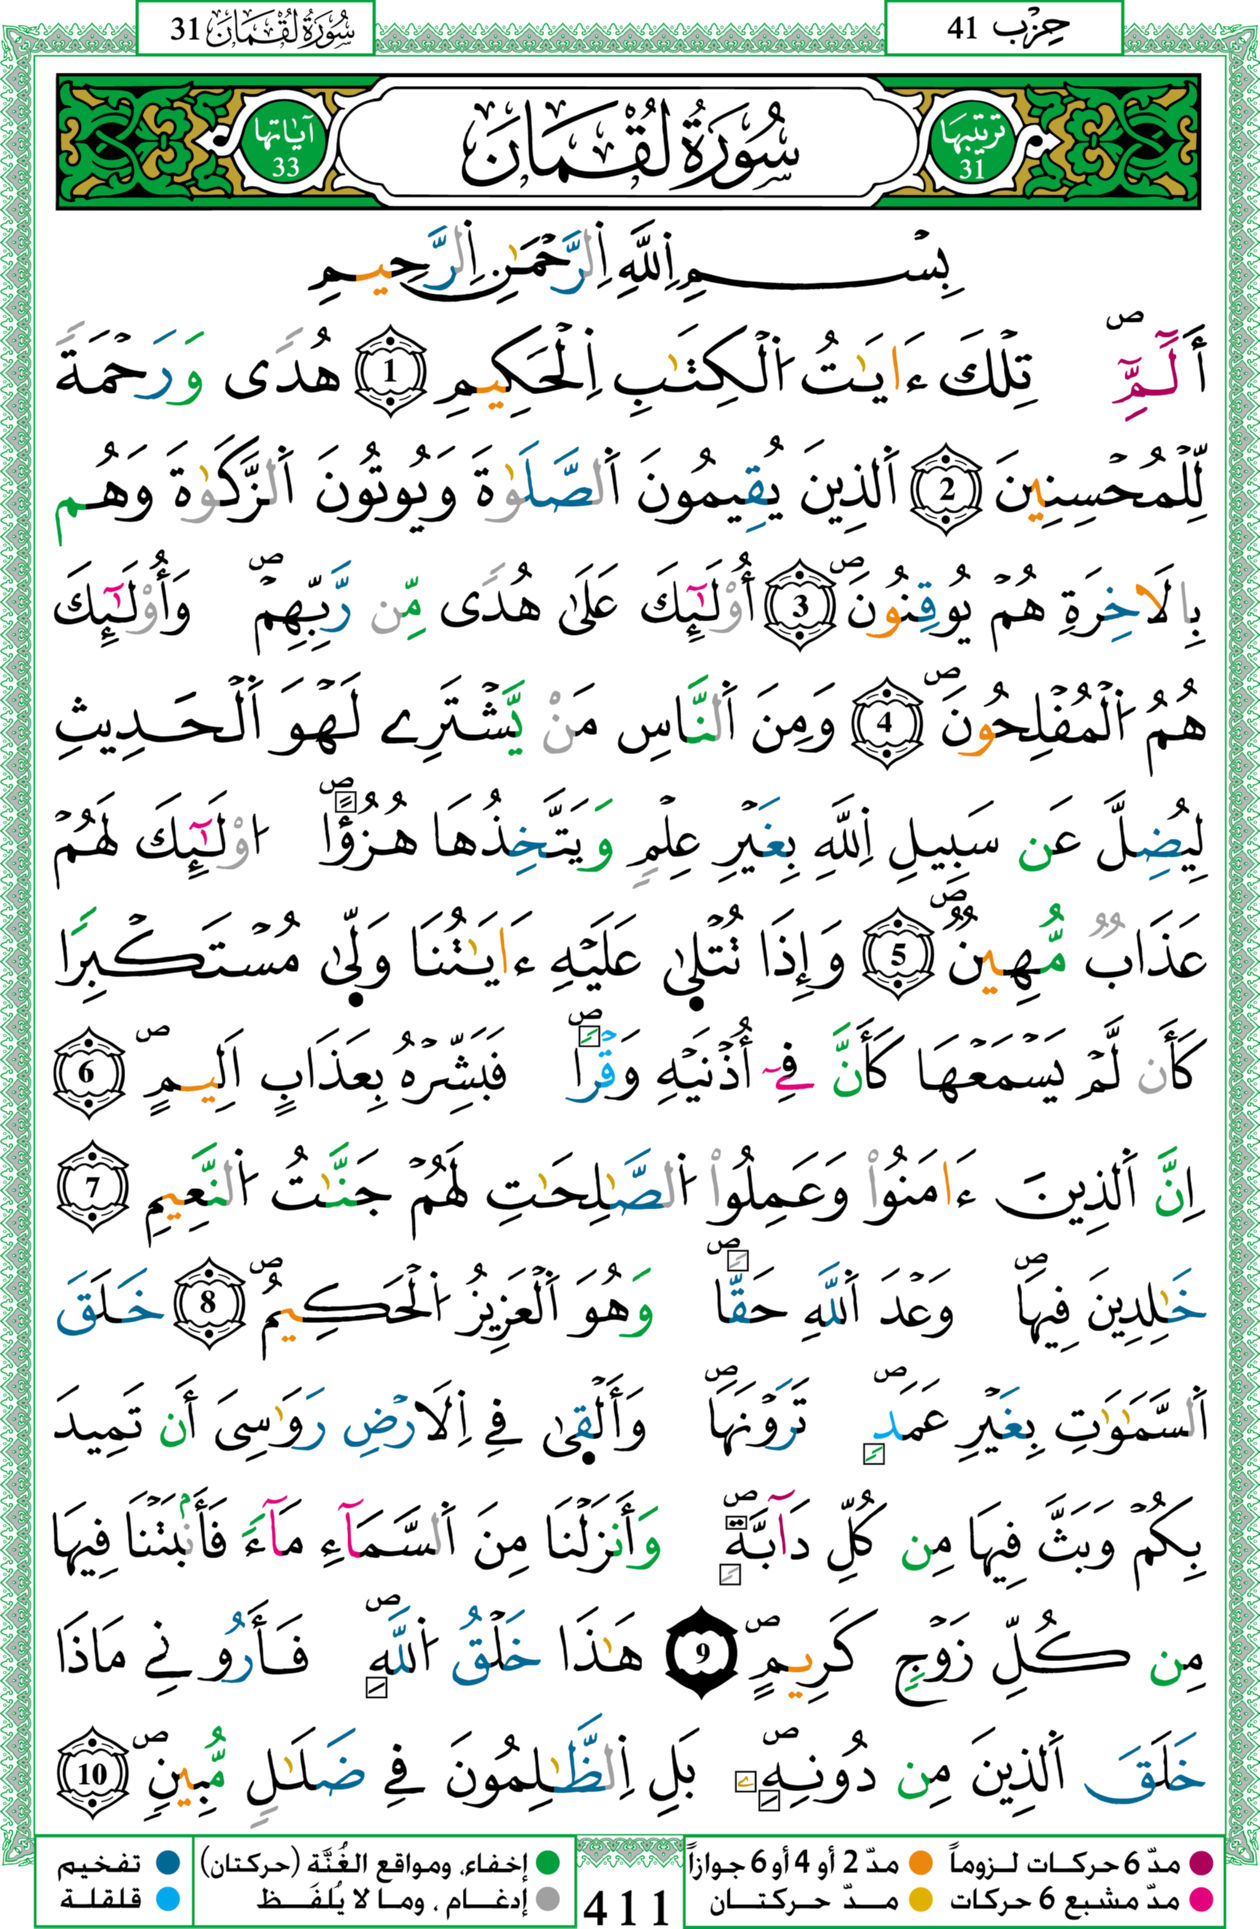 حِزْب 41
سُورَةُ لُقْمَانَ 31
تَرتيبُها 31
سُورَةُ لُقْمَانَ
آيَاتها 33
بِسْمِ اِ۬للَّهِ اِ۬لرَّحْمَٰنِ اِ۬لرَّحِيمِ
أَلَٓمِّٓۖ تِلْكَ ءَايَٰتُ اُ۬لْكِتَٰبِ اِ۬لْحَكِيمِ 1 هُدًى وَرَحْمَةً
لِّلْمُحْسِنِينَ 2 اَ۬لذِينَ يُقِيمُونَ اَ۬لصَّلَوٰةَ وَيُوتُونَ اَ۬لزَّكَوٰةَ وَهُم
بِالَاخِرَةِ هُمْ يُوقِنُونَۖ 3 أُوْلَٰٓئِكَ عَلَىٰ هُدًى مِّن رَّبِّهِمْۖ وَأُوْلَٰٓئِكَ
هُمُ اُ۬لْمُفْلِحُونَۖ 4 وَمِنَ اَ۬لنَّاسِ مَنْ يَّشْتَرِے لَهْوَ اَ۬لْحَدِيثِ
لِيُضِلَّ عَن سَبِيلِ اِ۬للَّهِ بِغَيْرِ عِلْمٍ وَيَتَّخِذُهَا هُزُؤاًۖ ا۟وْلَٰٓئِكَ لَهُمْ
عَذَابٌ مُّهِينٌۖ 5 وَإِذَا تُتْلَىٰ عَلَيْهِ ءَايَٰتُنَا وَلَّىٰ مُسْتَكْبِرًا
كَأَن لَّمْ يَسْمَعْهَا كَأَنَّ فِےٓ أُذْنَيْهِ وَقْرًاۖ فَبَشِّرْهُ بِعَذَابٍ اَلِيمٍۖ 6
اِنَّ اَ۬لذِينَ ءَامَنُواْ وَعَمِلُواْ اُ۬لصَّٰلِحَٰتِ لَهُمْ جَنَّٰتُ اُ۬لنَّعِيمِ 7
خَٰلِدِينَ فِيهَاۖ وَعْدَ اَ۬للَّهِ حَقًّاۖ وَهُوَ اَ۬لْعَزِيزُ اُ۬لْحَكِيمُۖ 8 خَلَقَ
اَ۬لسَّمَٰوَٰتِ بِغَيْرِ عَمَدٍۖ تَرَوْنَهَاۖ وَأَلْقَىٰ فِے اِ۬لَارْضِ رَوَٰسِىَ أَن تَمِيدَ
بِكُمْ وَبَثَّ فِيهَا مِن كُلِّ دَآبَّةٍۖ وَأَنزَلْنَا مِنَ اَ۬لسَّمَآءِ مَآءً فَأَنۢبَتْنَا فِيهَا
مِن كُلِّ زَوْجٍ كَرِيمٍۖ 9 هَٰذَا خَلْقُ اُ۬للَّهِۖ فَأَرُونِے مَاذَا
خَلَقَ اَ۬لذِينَ مِن دُونِهِۖ بَلِ اِ۬لظَّٰلِمُونَ فِے ضَلَٰلٍ مُّبِينٍۖ 10
مدّ 6 حركات لـزوماً مدّ 2 أو 4 أو 6 جوازاً
مدّ مشبع 6 حركات مــدّ حركتــان
411
إخفاء، ومواقع الغُنَّة (حركتان) تفخيم
إدغــام ، ومـا لا يُلفَـظ قلقلة